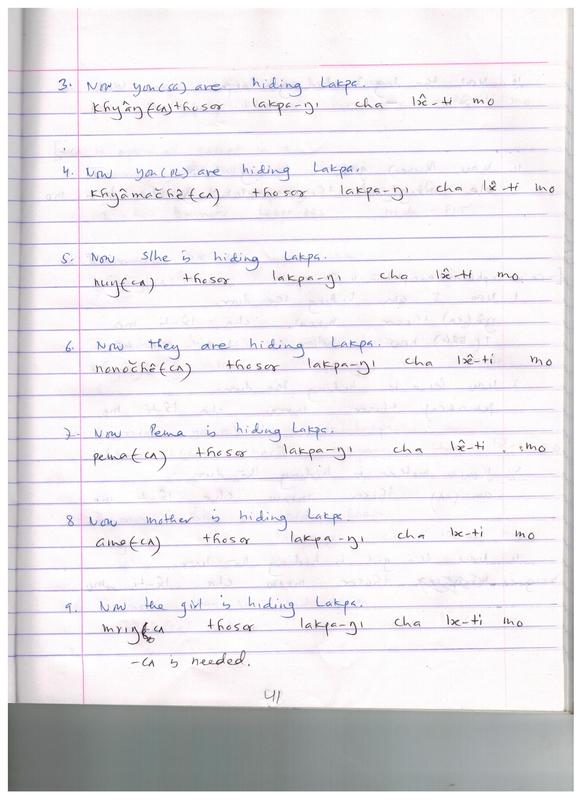 3. Now you(SG) are hiding Lakpa.
khyâŋ(-cʌ) thosor lakpa-ŋı cha lx̂-ti mo
4. Now you(PL) are hiding Lakpa.
khyâmačhê(-cʌ) thosor lakpa-ŋı cha lx̂-ti mo
5. Now s/he is hiding Lakpa.
huŋ(-cʌ) thosor lakpa-ŋı cha lx̂-ti mo
6. Now they are hiding Lakpa.
nonočhê(-cʌ) thosor lakpa-ŋı cha lx̂-ti mo
7. Now Pema is hiding Lakpa.
pema(-cʌ) thosor lakpa-ŋı cha lx̂-ti mo
8 Now mother is hiding Lakpa.
ama(-cʌ) thosor lakpa-ŋı cha lx-ti mo
9. Now the girl is hiding Lakpa.
mriŋ-cʌ thosor lakpa-ŋı cha lx-ti mo
-cʌ is needed.
41